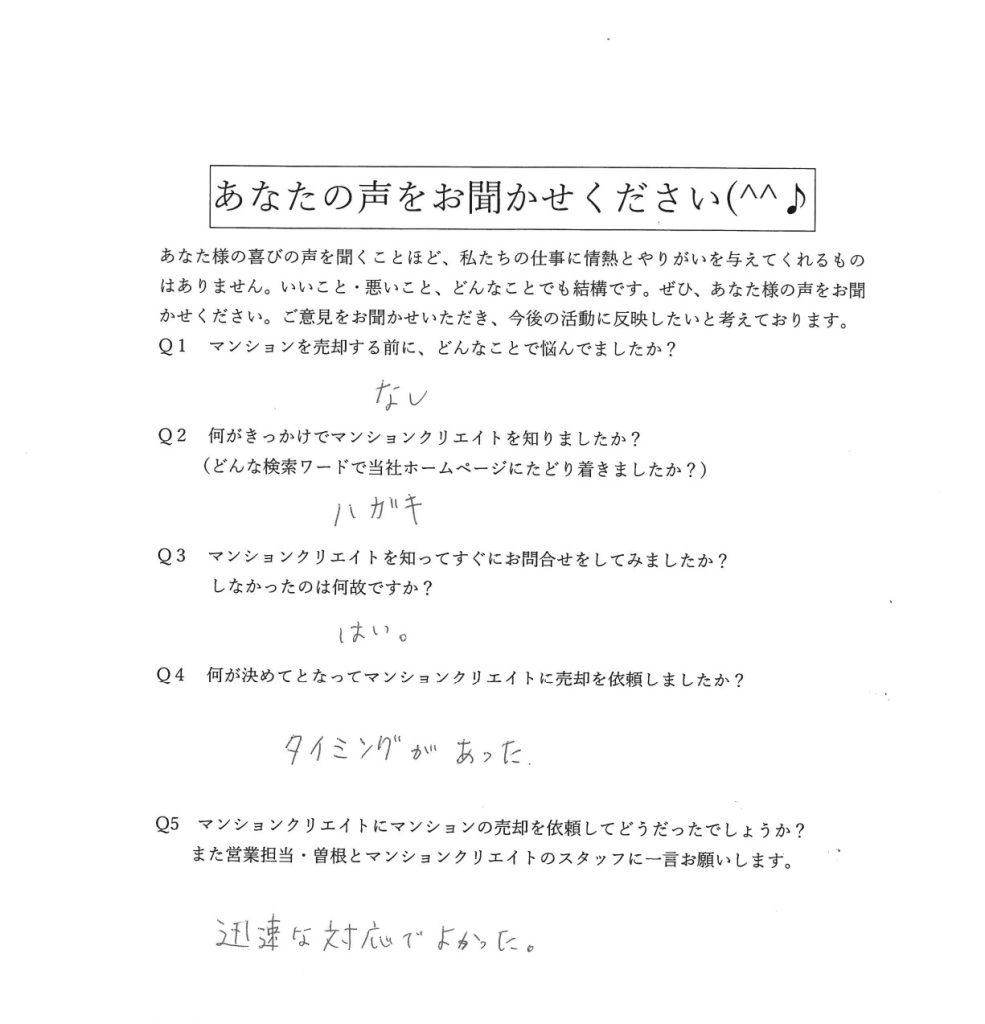 あなたの声をお聞かせください(^^♪
あなた様の喜びの声を聞くことほど、私たちの仕事に情熱とやりがいを与えてくれるもの
はありません。いいこと・悪いこと、どんなことでも結構です。ぜひ、あなた様の声をお聞
かせください。ご意見をお聞かせいただき、今後の活動に反映したいと考えております。
Q1　マンションを売却する前に、どんなことで悩んでましたか？
なし
Q2　何がきっかけでマンションクリエイトを知りましたか？
（どんな検索ワードで当社ホームページにたどり着きましたか？）
ハガキ
Q3　マンションクリエイトを知ってすぐにお問合せをしてみましたか？
しなかったのは何故ですか？
はい。
Q4　何が決めてとなってマンションクリエイトに売却を依頼しましたか？
タイミングがあった.
Q5　マンションクリエイトにマンションの売却を依頼してどうだったでしょうか？
また営業担当・曽根とマンションクリエイトのスタッフに一言お願いします。
迅速な対応でよかった。